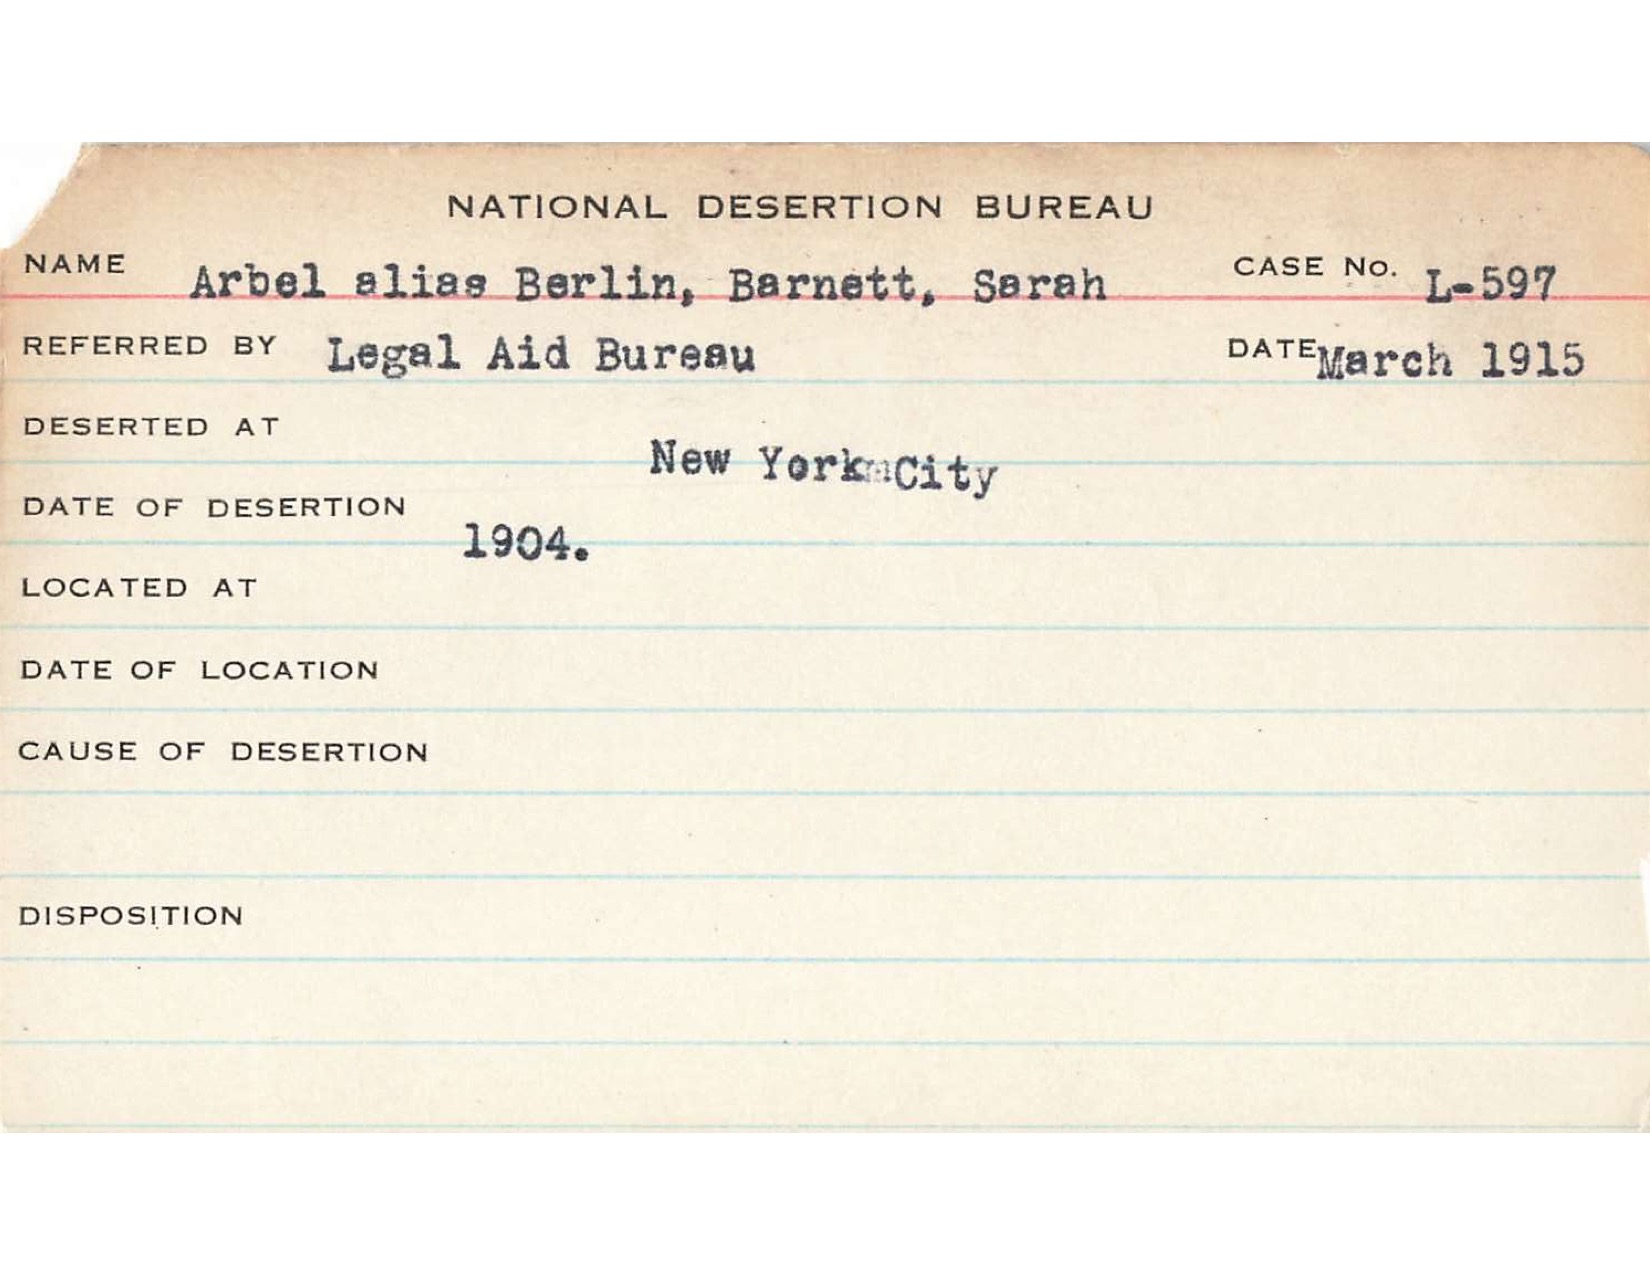 NATIONAL DESERTION BUREAU
NAME Arbel alias Berlin, Barnett, Sarah CASE No. L-597
REFERRED BY Legal Aid Bureau DATE March 1915
DESERTED AT New York City
DATE OF DESERTION 1904.
LOCATED AT
DATE OF LOCATION
CAUSE OF DESERTION
DISPOSITION